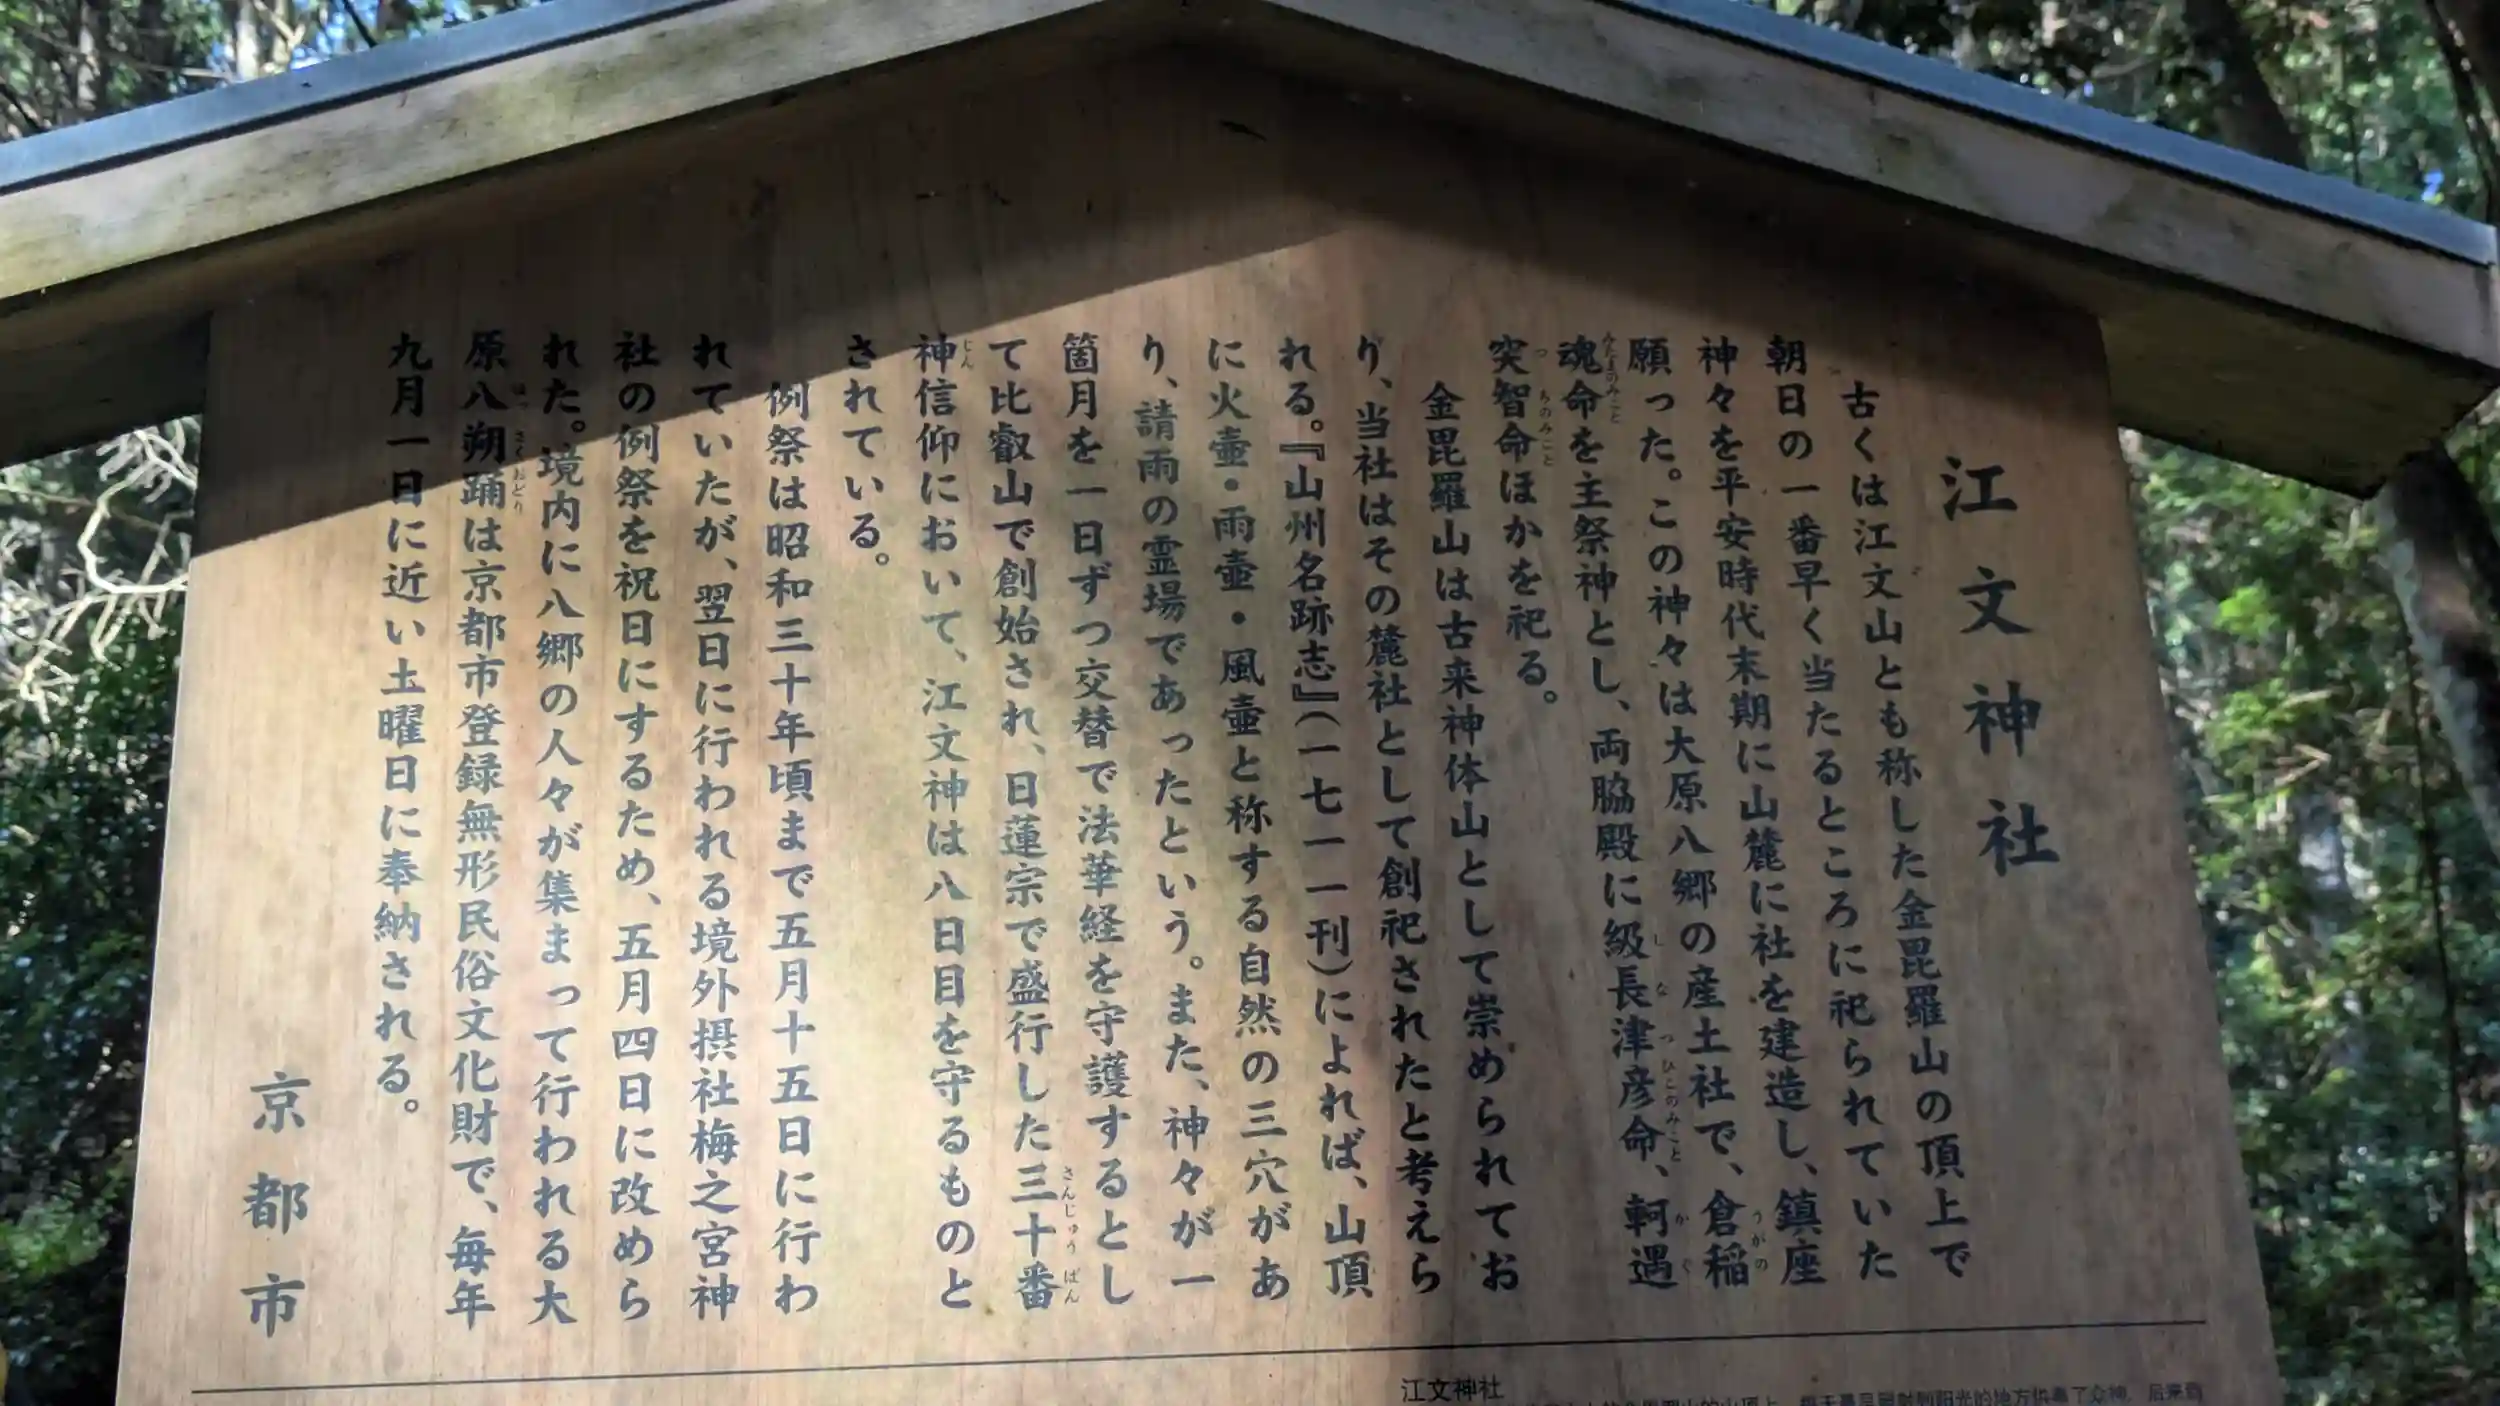 江文神社
古くは江文山とも称した金毘羅山の頂上で
朝日の一番早く当たるところに祀られていた
神々を平安時代末期に山麓に社を建造し、鎮座
願った。この神々は大原八郷の産土社で、倉稲
魂命を主祭神とし、両脇殿に級長津彦命、軻遇
突智命ほかを祀る。
金毘羅山は古来神体山として崇められてお
り、当社はその麓社として創祀されたと考えら
れる。『山州名跡志』(一七一一刊)によれば、山頂
に火壷・雨壷・風壷と称する自然の三穴があ
り、請雨の霊場であったという。また、神々が一
箇月を一日ずつ交替で法華経を守護するとし
て比叡山で創始され、日蓮宗で盛行した三十番
神信仰において、江文神は八日目を守るものと
されている。
例祭は昭和三十年頃まで五月十五日に行わ
れていたが、翌日に行われる境外摂社梅之宮神
社の例祭を祝日にするため、五月四日に改めら
れた。境内に八郷の人々が集まって行われる大
原八朔踊は京都市登録無形民俗文化財で、毎年
九月一日に近い土曜日に奉納される。
京都市
江文神社